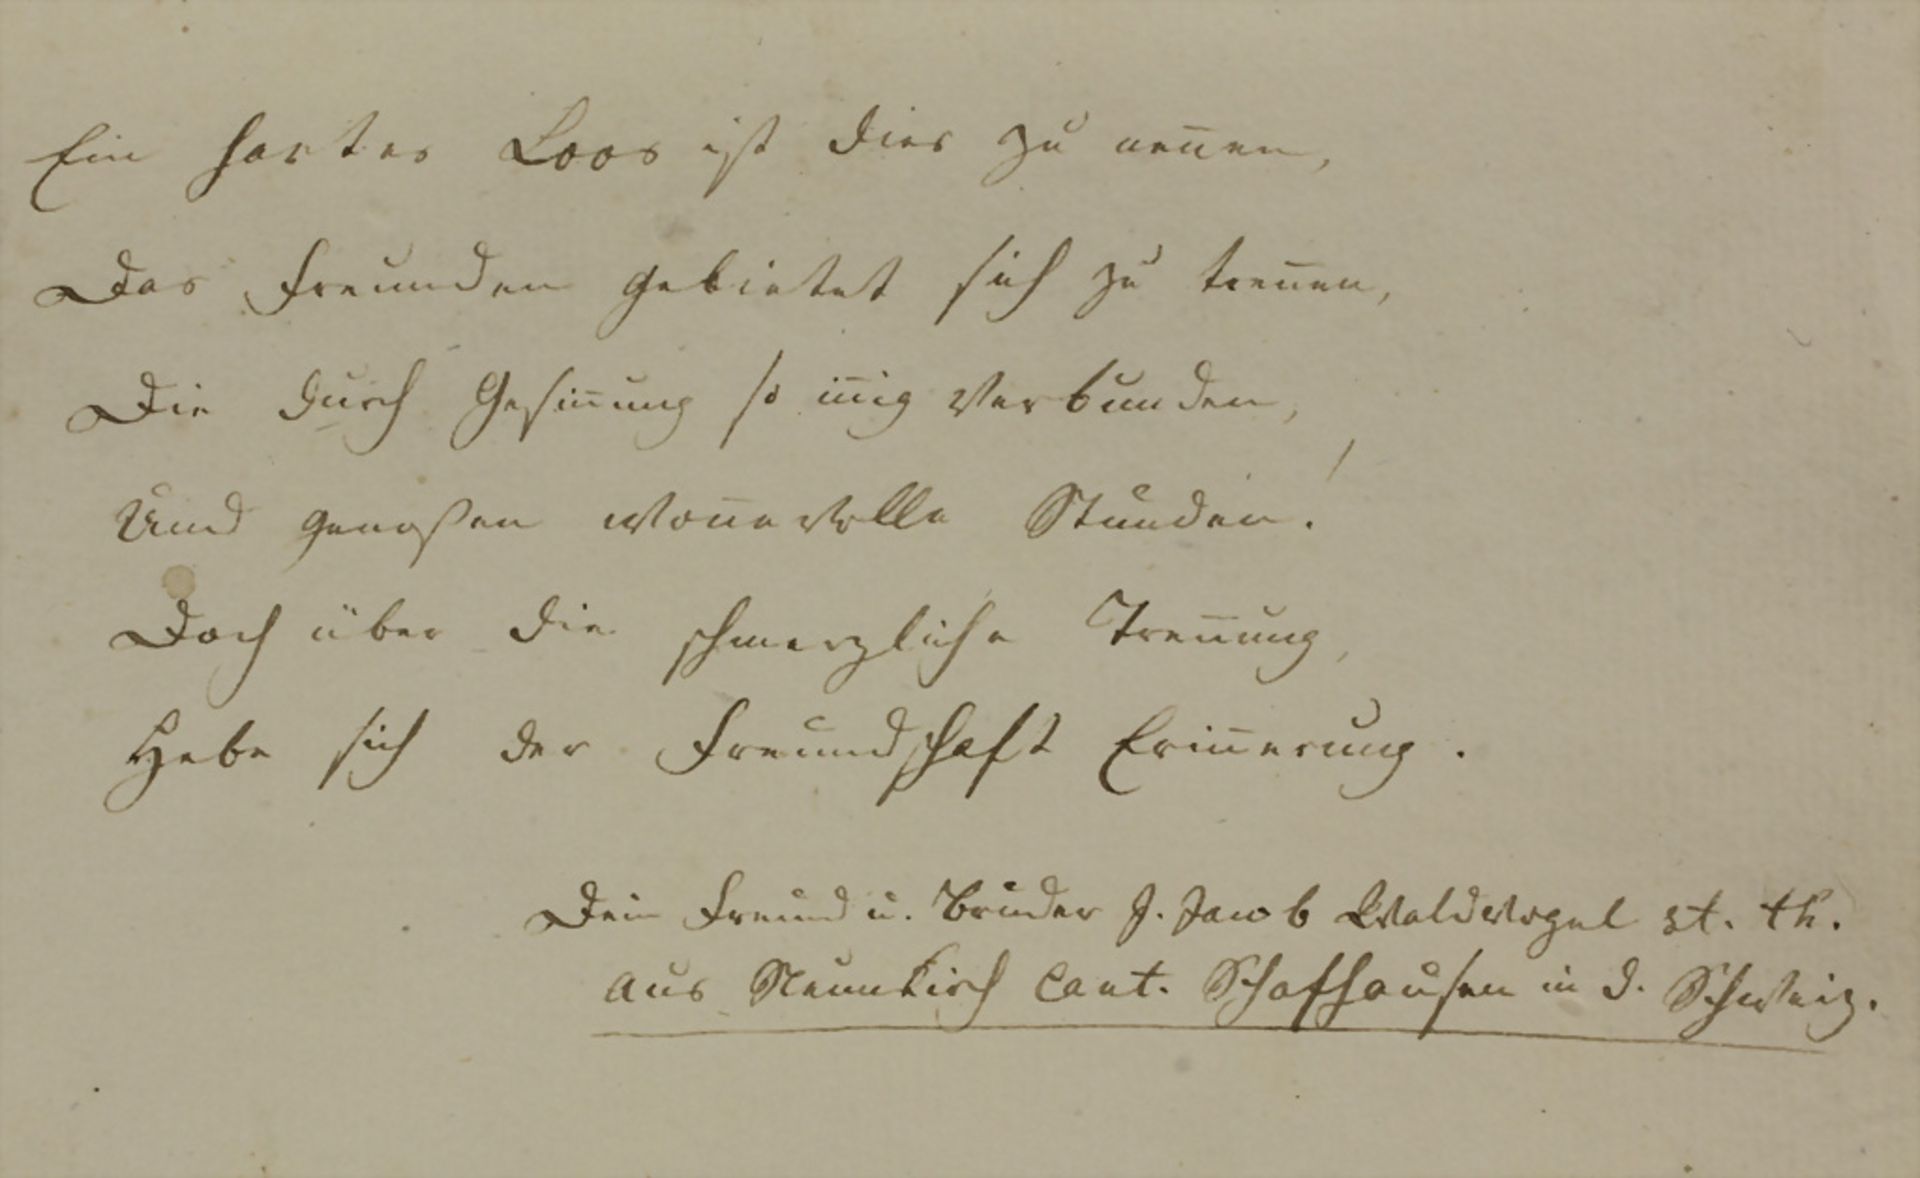 Ein hartes Loos ist dies zu nen̄en,
Das Freunden gebietet sich zu tren̄en,
Die durch Gesin̄ung so in̄ig verbunden,
Und genoßen won̄evolle Stunden!
Doch über die schmerzliche Tren̄ung,
Hebe sich der Freundschaft Erin̄erung.
Dein Freund u. Bruder J. Jacob Waldvogel st. th.
aus Neunkirch Cant. Schafhausen in d. Schweiz.